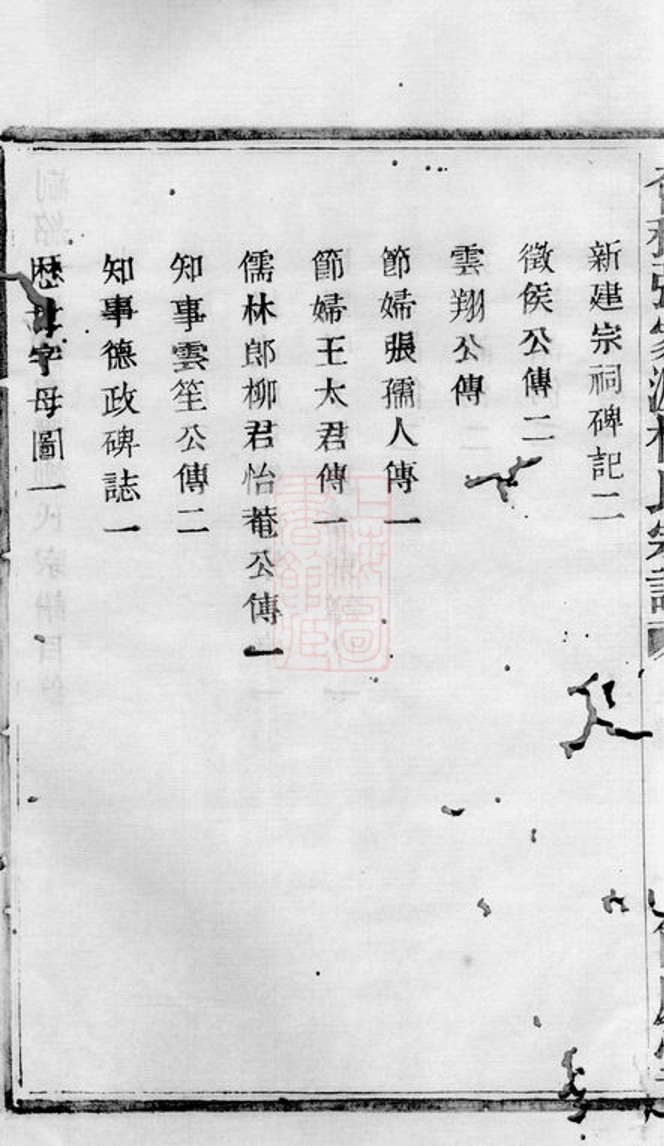 新建宗祠碑記二
徵侯公傳二
雲翔公傳
節婦張孺人傳一
節婦王太君傳一
儒林郎柳君怡菴公傳一
知事雲笙公傳二
知事德政碑誌一
歷字母圖一
上海圖書館藏